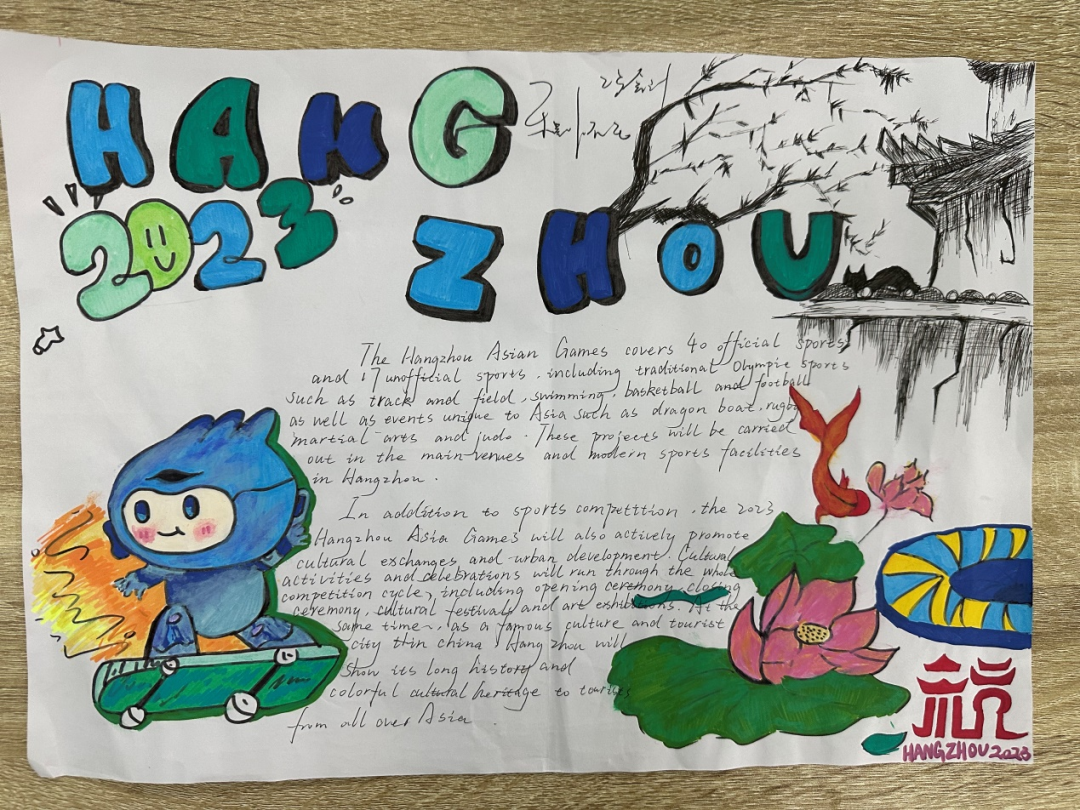 HANG
2023
ZHOU
The Hangzhou Asian Games covers 40 official sports
and 17 unofficial sports, including traditional Olympic sports
such as track and field, swimming, basketball and football
as well as events unique to Asia such as dragon boat, rugby
martial arts and judo. These projects will be carried
out in the main venues and modern sports facilities
in Hangzhou.
In addition to sports competition, the 2023
Hangzhou Asia Games will also actively promote
cultural exchanges and urban development. Cultural
activities and celebrations will run through the whole
competition cycle, including opening ceremony, closing
ceremony, cultural festivals and art exhibitions. At the
same time, as a famous culture and tourist
city thin china, Hang zhou will
show its long history and
colorful cultural heritage to tourises
from all over Asia.
杭
HANGZHOU 2023